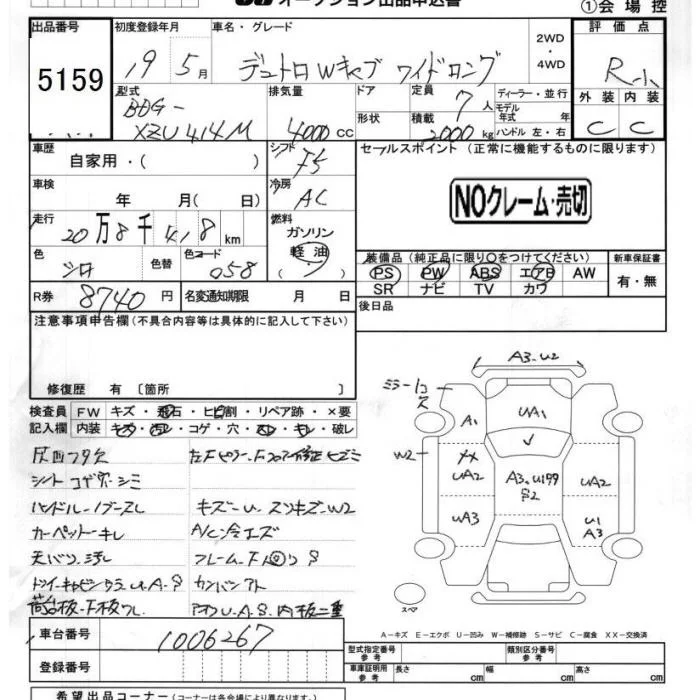 オークション出品申込書
①会場控
出品番号 初度登録年月 車名・グレード 評価点
5159 19 5月 デュトロ Wキャブ ワイドロング 2WD ・ 4WD R-小
型式 排気量 ドア 定員 7人 ディーラー・並行 外装 内装
BDG-
XZU414M 4000cc 形状 積載 2000kg モデル年式 年 ハンドル 左・右 C C
車歴 自家用・( ) シフト F5 セールスポイント (正常に機能するものに限ります)
車検 年 月( 日) 冷房 AC NOクレーム・売切
走行 20万8千418km 燃料 ガソリン 軽油 ( )
色 シロ 色替 色コード 058 装備品 (純正品に限り○をつけてください) 新車保証書
PS PW ABS エアB AW 有・無
SR ナビ TV カワ
R券 8740円 名変通知期限 月 日 後日品
注意事項申告欄(不具合内容等は具体的に記入して下さい)
修復歴 有 〔箇所 〕
検査員記入欄 FW キズ・飛石・ヒビ割・リペア跡・×要
内装 キズ・汚レ・コゲ・穴・スレ・キレ・破レ
灰皿フタ欠
シートコゲ穴・シミ
ハンドル・ノブスレ キズ-U スリキズ-W2
カーペットキレ A/C
天バリ汚レ フレーム
カンバンアト
内板二重
A3.U2
ミラー
キズ
A1 UA1
W2 XX
UA2 A3.U199 UA2
UA3 U1
A3
スペア
A-キズ E-エクボ U-凹み W-補修跡 S-サビ C-腐食 XX-交換済
車台番号 1006267
登録番号
型式指定番号 参考 類別区分番号 参考
車庫証明用 参考 長さ cm 幅 cm 高さ cm
希望出品コーナー (コーナーは各会場により異なります)